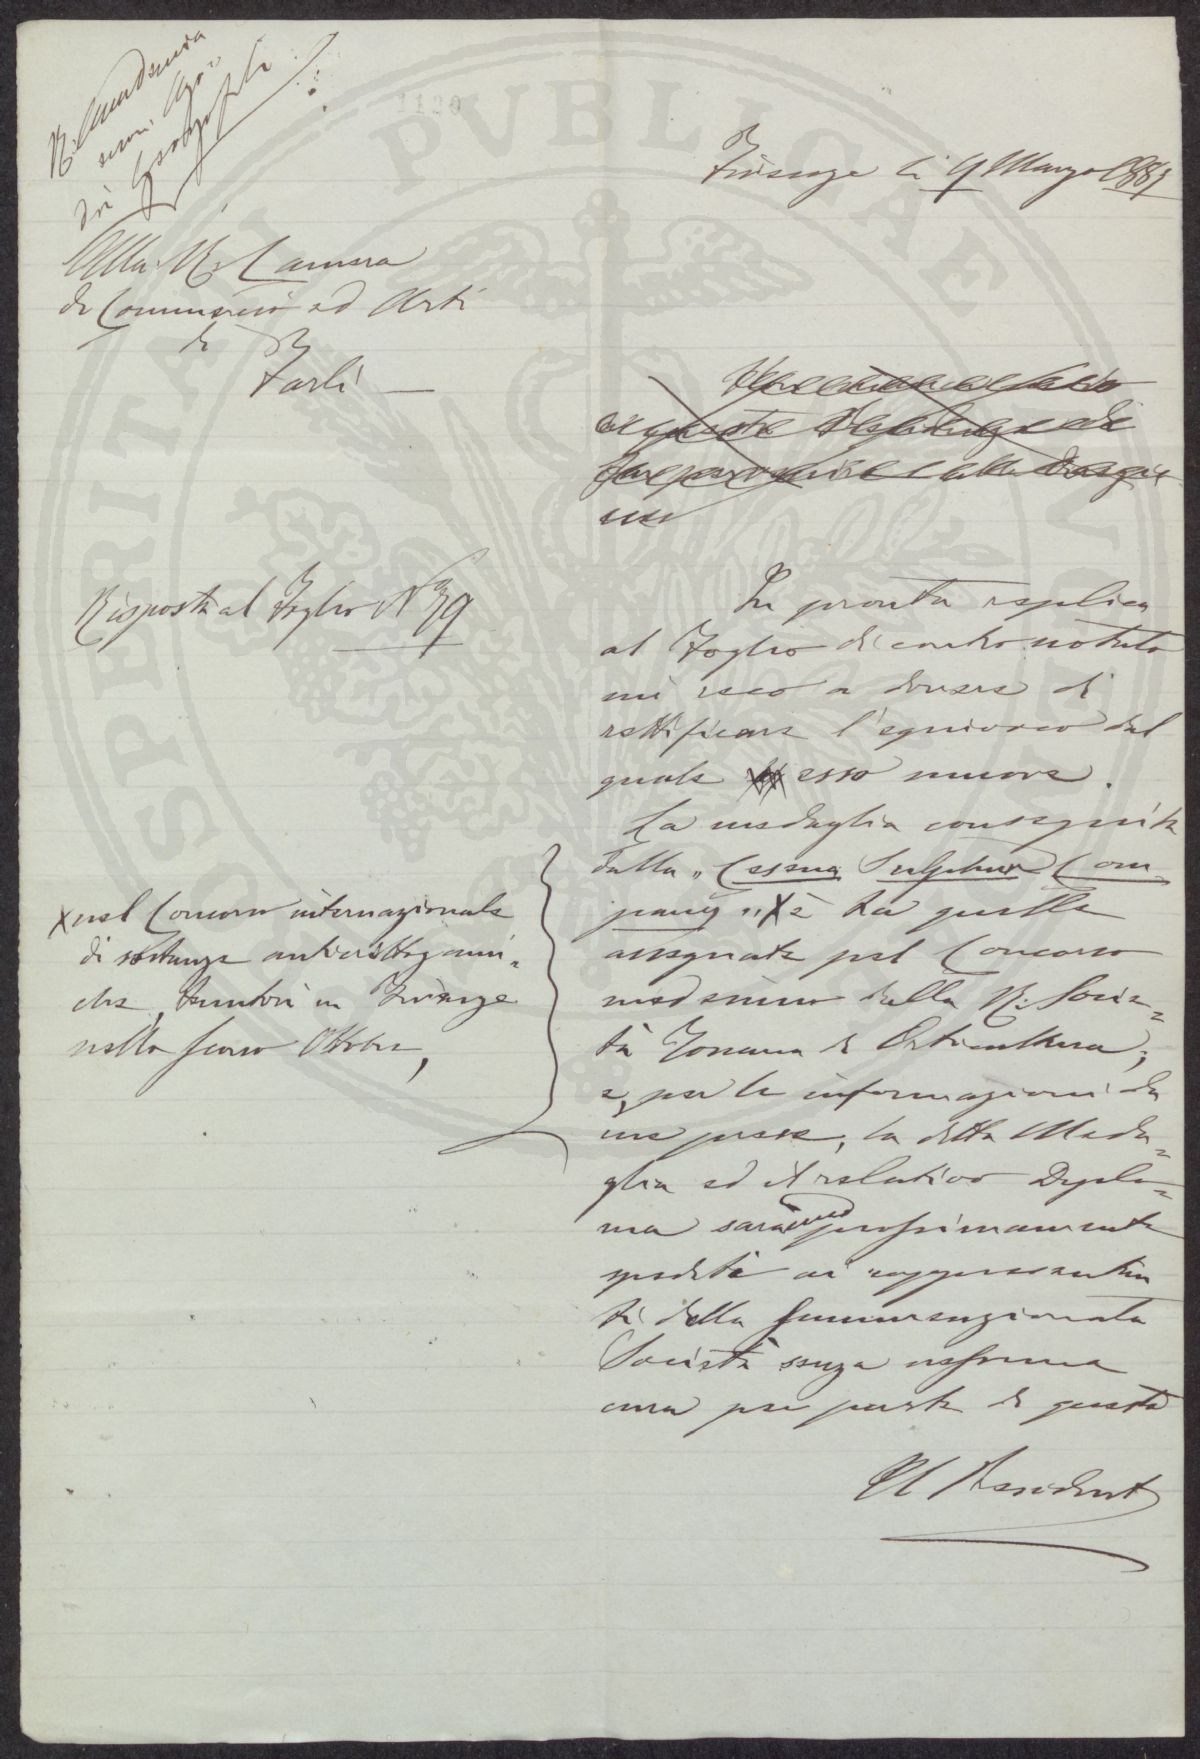 R. Accademia
econ. Agr.
dei Georgofili
1120
Firenze li 9 Marzo 1887
Alla R. Camera
di Commercio ed Arti
di
Forlì —
Risposta al Foglio N 39
In pronta replica
al Foglio di contro notato
mi reco a dovere di
rettificare l'equivoco dal
quale esso muove.
La medaglia conseguita
dalla „ Cesena Sulphur Com-
pany „ X è tra quelle
assegnate pel Concorso
medesimo dalla R. Socie=
tà Toscana di Orticultura;
e, per le informazioni da
me prese, la detta Meda=
glia ed il relativo Diplo=
ma saranno prossimamente
spediti ai rappresentan
ti della summenzionata
Società senza nessuna
cura per parte di questa
Il Presidente
X nel Concorso internazionale
di sostanze anticrittogami=
che, tenutosi in Firenze
nello scorso Ottobre,
PROSPERITATI PUBLICAE